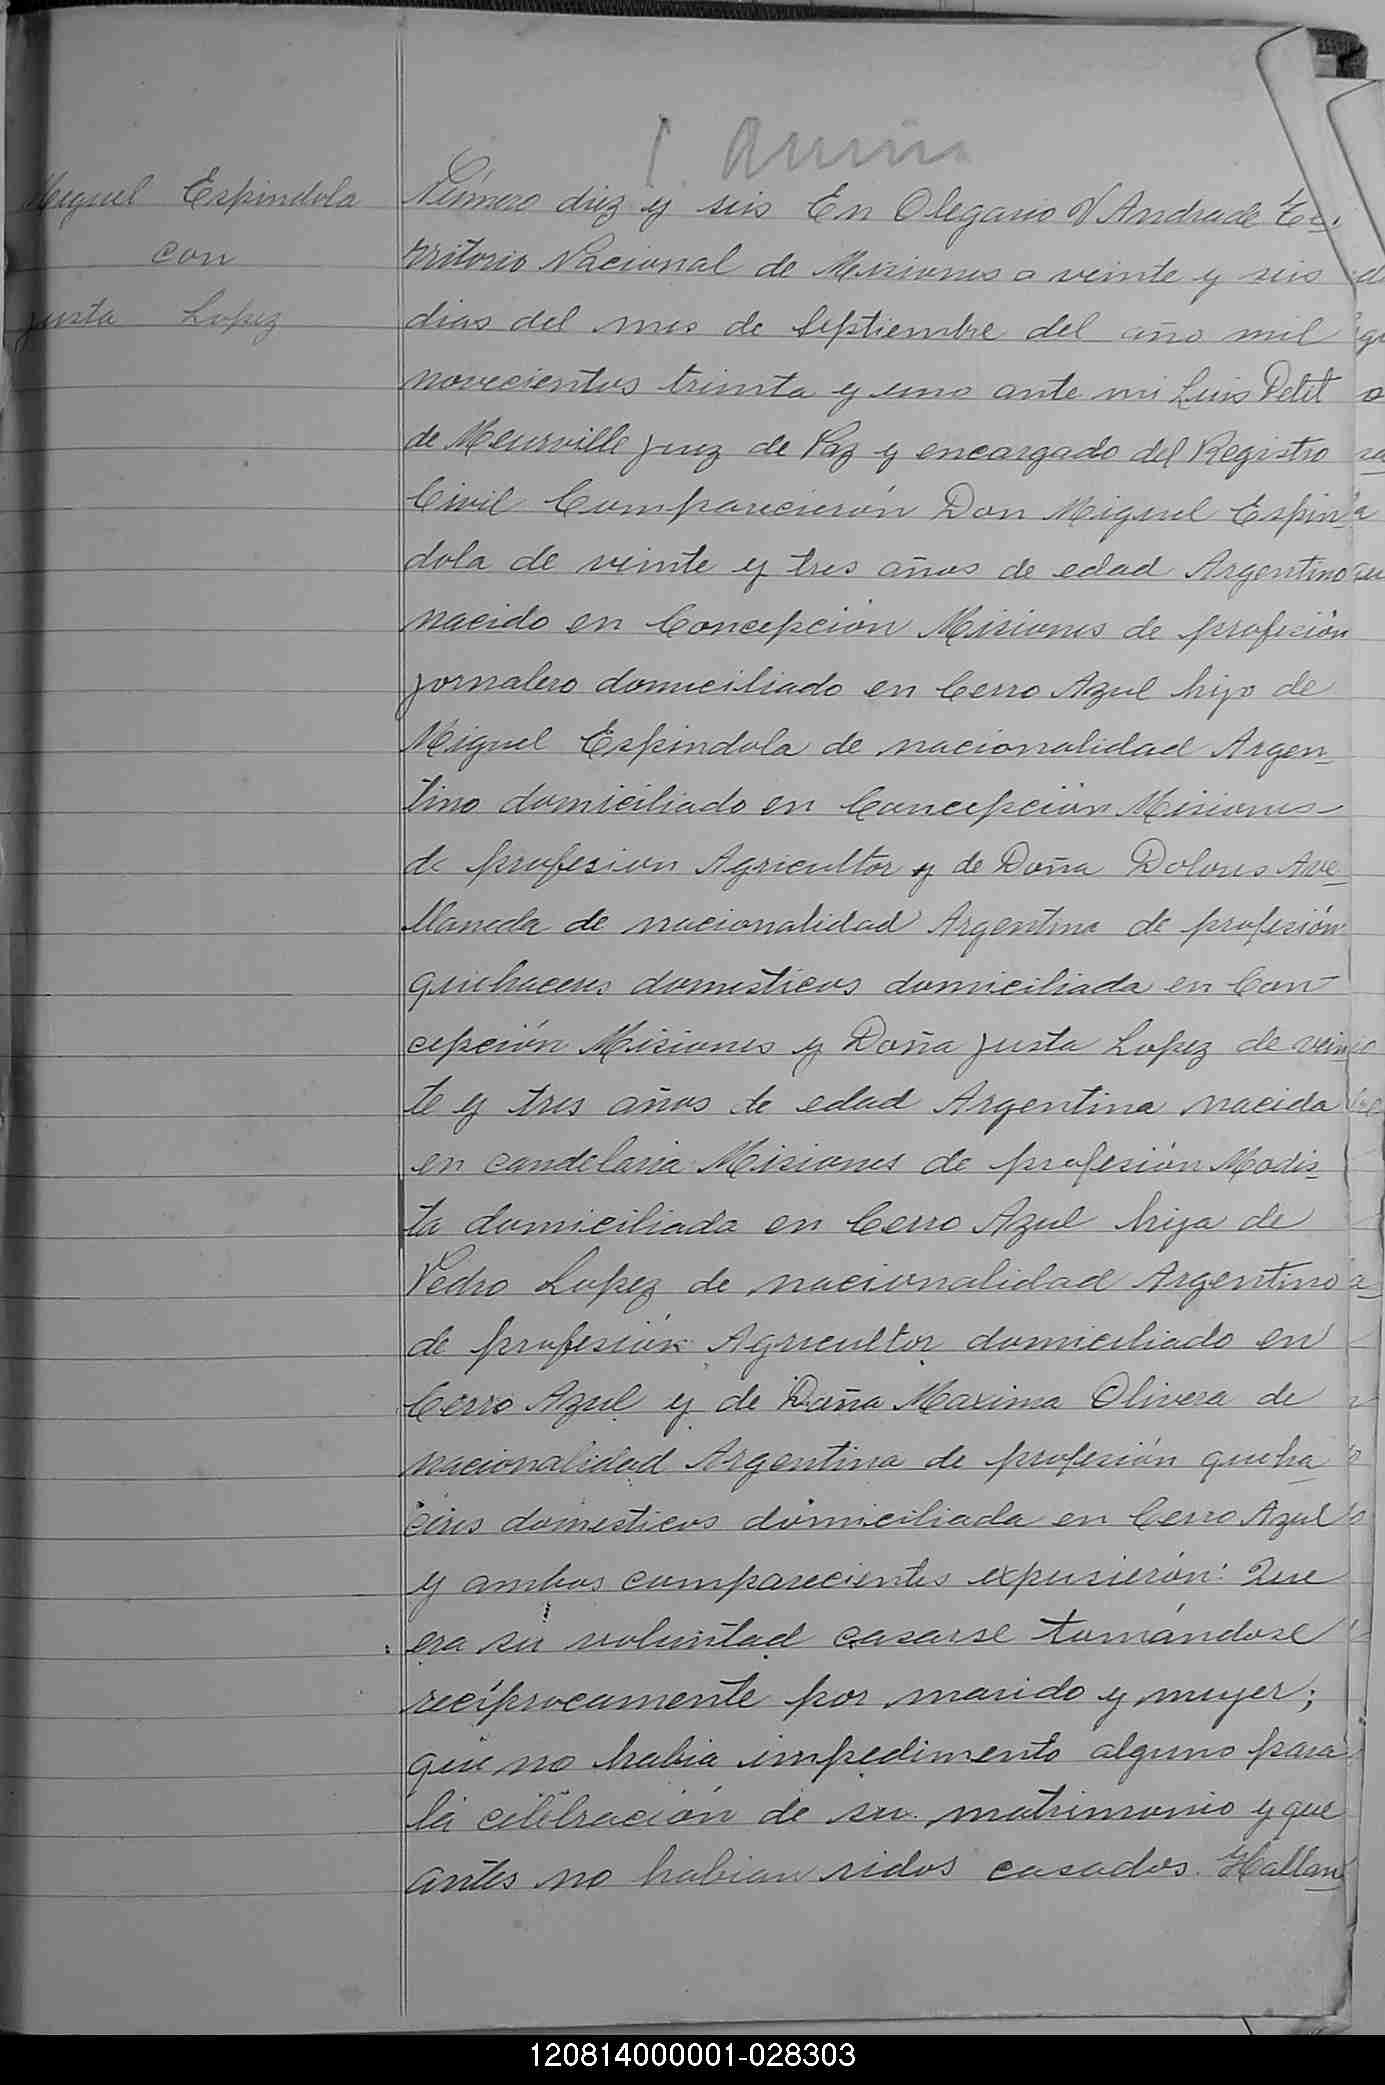 Miguel Espindola
con
Justa Lopez
Número diez y seis En Olegario V Andrade Te-
rritorio Nacional de Misiones a veinte y seis
dias del mes de Septiembre del año mil
novecientos treinta y uno ante mi Luis Petit
de Meurville Juez de Paz y encargado del Registro
Civil Comparecierón Don Miguel Espin-
dola de veinte y tres años de edad Argentino
nacido en Concepción Misiones de profesión
jornalero domiciliado en Cerro Azul hijo de
Miguel Espindola de nacionalidad Argen-
tino domiciliado en Concepción Misiones
de profesion Agricultor y de Doña Dolores Ave-
llaneda de nacionalidad Argentina de profesión
quehaceres domesticos domiciliada en Con-
cepción Misiones y Doña Justa Lopez de vein-
te y tres años de edad Argentina nacida
en candelaria Misiones de profesión Modis-
ta domiciliada en Cerro Azul hija de
Pedro Lopez de nacionalidad Argentino
de profesión Agricultor domiciliado en
Cerro Azul y de Doña Maxima Olivera de
nacionalidad Argentina de profesión queha-
ceres domesticos domiciliada en Cerro Azul
y ambos comparecientes expusierón: Que
era su voluntad casarse tomándose
recíprocamente por marido y mujer;
que no habia impedimento alguno para
la celebración de su matrimonio y que
antes no habian sidos casados. Hallan-
120814000001-028303